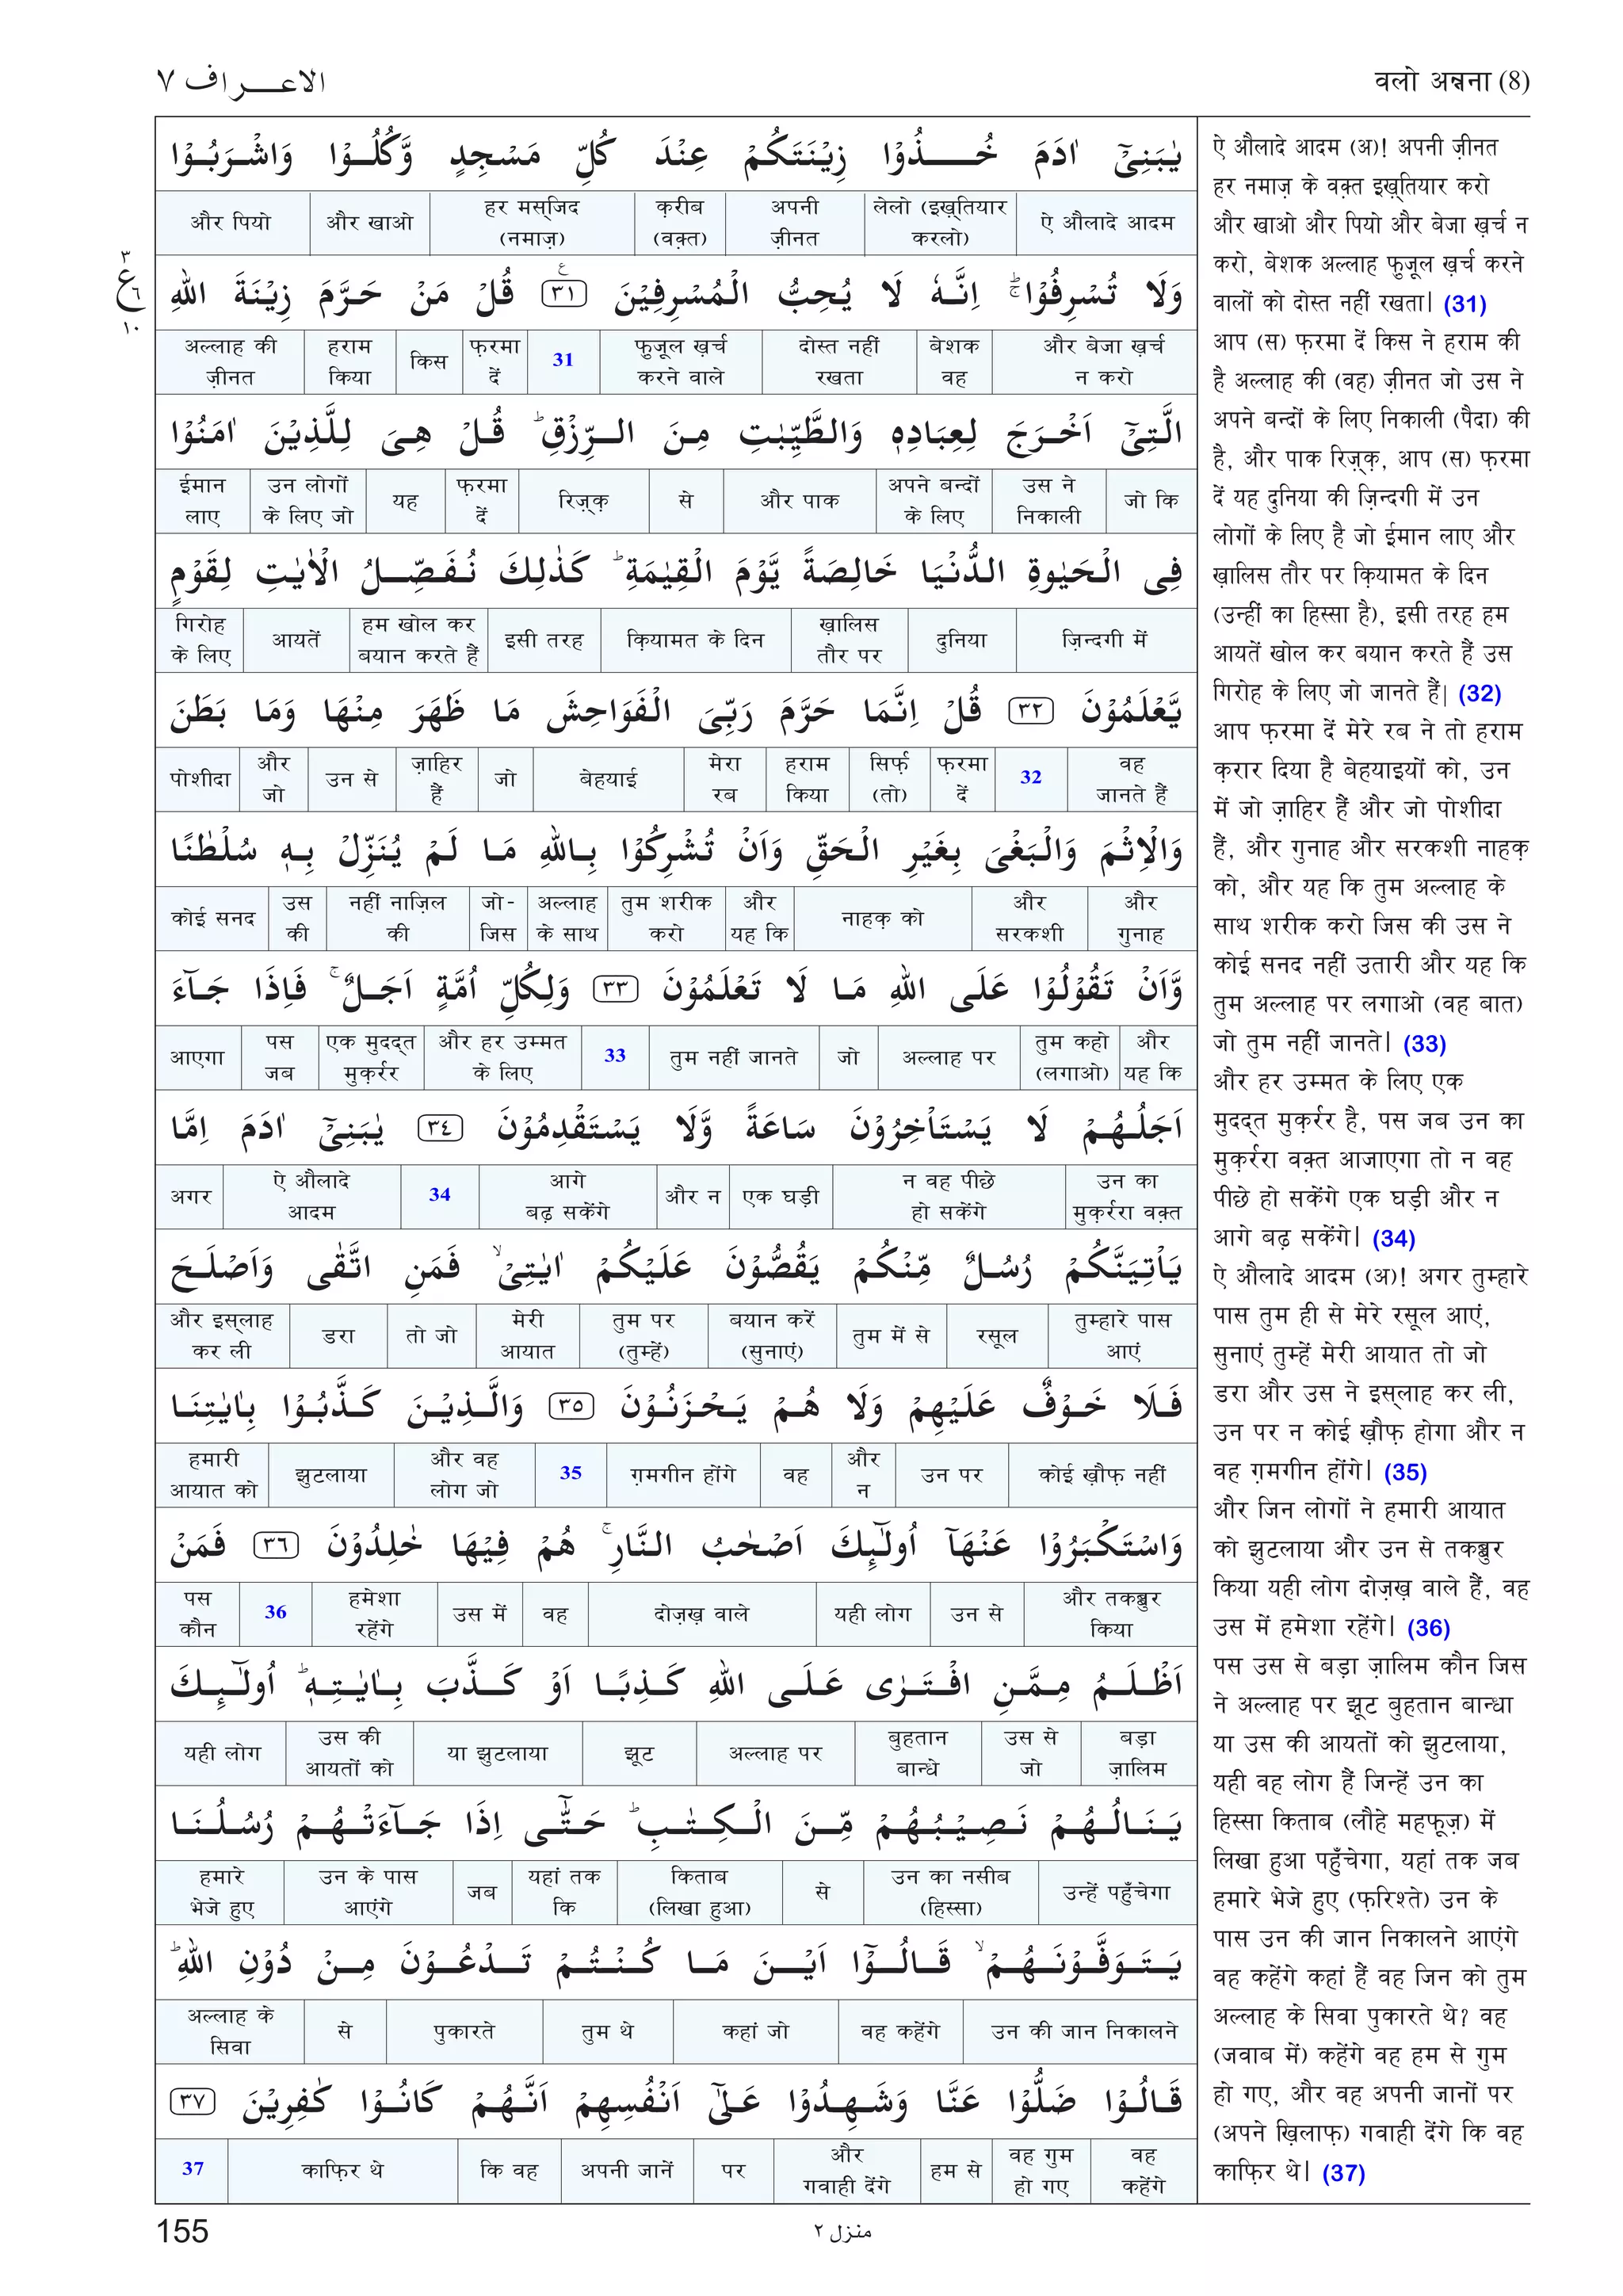 الاعراف ٧
वलो अन्नना (8)
يٰبَنِىْۤ اٰدَمَ خُذُوْا زِيْنَتَكُمْ عِنْدَ كُلِّ مَسْجِدٍ وَّكُلُوْا وَاشْرَبُوْا
ऐ औलादे आदम | लेलो (इख़्तियार करलो) | अपनी ज़ीनत | क़रीब (वक़्त) | हर मस्जिद (नमाज़) | और खाओ | और पियो
وَلَا تُسْرِفُوْا ۚ اِنَّهٗ لَا يُحِبُّ الْمُسْرِفِيْنَ ٣١ قُلْ مَنْ حَرَّمَ زِيْنَةَ اللهِ
और बेजा ख़र्च न करो | बेशक वह | दोस्त नहीं रखता | फ़ुज़ूल ख़र्च करने वाले | 31 | फ़रमा दें | किस | हराम किया | अल्लाह की ज़ीनत
الَّتِىْۤ اَخْرَجَ لِعِبَادِهٖ وَالطَّيِّبٰتِ مِنَ الرِّزْقِ ؕ قُلْ هِىَ لِلَّذِيْنَ اٰمَنُوْا
जो कि | उस ने निकाली | अपने बन्दों के लिए | और पाक | से | रिज़्क़ | फ़रमा दें | यह | उन लोगों के लिए जो | ईमान लाए
فِى الْحَيٰوةِ الدُّنْيَا خَالِصَةً يَّوْمَ الْقِيٰمَةِ ؕ كَذٰلِكَ نُفَصِّلُ الْاٰيٰتِ لِقَوْمٍ
ज़िन्दगी में | दुनिया | ख़ालिस तौर पर | क़ियामत के दिन | इसी तरह | हम खोल कर बयान करते हैं | आयतें | गिरोह के लिए
يَّعْلَمُوْنَ ٣٢ قُلْ اِنَّمَا حَرَّمَ رَبِّىَ الْفَوَاحِشَ مَا ظَهَرَ مِنْهَا وَمَا بَطَنَ
वह जानते हैं | 32 | फ़रमा दें | सिर्फ़ (तो) | हराम किया | मेरा रब | बेहयाई | जो | ज़ाहिर हैं | उन से | और जो | पोशीदा
وَالْاِثْمَ وَالْبَغْىَ بِغَيْرِ الْحَقِّ وَاَنْ تُشْرِكُوْا بِاللهِ مَا لَمْ يُنَزِّلْ بِهٖ سُلْطٰنًا
और गुनाह | और सरकशी | नाहक़ को | और यह कि | तुम शरीक करो | अल्लाह के साथ | जो-जिस | नहीं नाज़िल की | उस की | कोई सनद
وَّاَنْ تَقُوْلُوْا عَلَى اللهِ مَا لَا تَعْلَمُوْنَ ٣٣ وَلِكُلِّ اُمَّةٍ اَجَلٌ ۚ فَاِذَا جَآءَ
और यह कि | तुम कहो (लगाओ) | अल्लाह पर | जो | तुम नहीं जानते | 33 | और हर उम्मत के लिए | एक मुद्दत मुक़र्रर | पस जब | आएगा
اَجَلُهُمْ لَا يَسْتَاْخِرُوْنَ سَاعَةً وَّلَا يَسْتَقْدِمُوْنَ ٣٤ يٰبَنِىْۤ اٰدَمَ اِمَّا
उन का मुक़र्ररा वक़्त | न वह पीछे हो सकेंगे | एक घड़ी | और न | आगे बढ़ सकेंगे | 34 | ऐ औलादे आदम | अगर
يَاْتِيَنَّكُمْ رُسُلٌ مِّنْكُمْ يَقُصُّوْنَ عَلَيْكُمْ اٰيٰتِىْ ۙ فَمَنِ اتَّقٰى وَاَصْلَحَ
तुम्हारे पास आएं | रसूल | तुम में से | बयान करें (सुनाएं) | तुम पर (तुम्हें) | मेरी आयात | तो जो | डरा | और इस्लाह कर ली
فَلَا خَوْفٌ عَلَيْهِمْ وَلَا هُمْ يَحْزَنُوْنَ ٣٥ وَالَّذِيْنَ كَذَّبُوْا بِاٰيٰتِنَا
कोई ख़ौफ़ नहीं | उन पर | और न | वह | ग़मगीन होंगे | 35 | और वह लोग जो | झुटलाया | हमारी आयात को
وَاسْتَكْبَرُوْا عَنْهَاۤ اُولٰٓئِكَ اَصْحٰبُ النَّارِ ۚ هُمْ فِيْهَا خٰلِدُوْنَ ٣٦ فَمَنْ
और तकब्बुर किया | उन से | यही लोग | दोज़ख़ वाले | वह | उस में | हमेशा रहेंगे | 36 | पस कौन
اَظْلَمُ مِمَّنِ افْتَرٰى عَلَى اللهِ كَذِبًا اَوْ كَذَّبَ بِاٰيٰتِهٖ ؕ اُولٰٓئِكَ
बड़ा ज़ालिम | उस से जो | बुहतान बान्धे | अल्लाह पर | झूट | या झुटलाया | उस की आयतों को | यही लोग
يَنَالُهُمْ نَصِيْبُهُمْ مِّنَ الْكِتٰبِ ؕ حَتّٰٓى اِذَا جَآءَتْهُمْ رُسُلُنَا
उन्हें पहुँचेगा | उन का नसीब (हिस्सा) | से | किताब (लिखा हुआ) | यहां तक कि | जब | उन के पास आएंगे | हमारे भेजे हुए
يَتَوَفَّوْنَهُمْ ۙ قَالُوْۤا اَيْنَ مَا كُنْتُمْ تَدْعُوْنَ مِنْ دُوْنِ اللهِ ؕ
उन की जान निकालने | वह कहेंगे | कहां जो | तुम थे | पुकारते | से | अल्लाह के सिवा
قَالُوْا ضَلُّوْا عَنَّا وَشَهِدُوْا عَلٰٓى اَنْفُسِهِمْ اَنَّهُمْ كَانُوْا كٰفِرِيْنَ ٣٧
वह कहेंगे | वह गुम हो गए | हम से | और गवाही देंगे | पर | अपनी जानें | कि वह | काफ़िर थे | 37
٣
ع
٦
١٠
ऐ औलादे आदम (अ)! अपनी ज़ीनत
हर नमाज़ के वक़्त इख़्तियार करो
और खाओ और पियो और बेजा ख़र्च न
करो, बेशक अल्लाह फ़ुज़ूल ख़र्च करने
वालों को दोस्त नहीं रखता| (31)
आप (स) फ़रमा दें किस ने हराम की
है अल्लाह की (वह) ज़ीनत जो उस ने
अपने बन्दों के लिए निकाली (पैदा) की
है, और पाक रिज़्क़, आप (स) फ़रमा
दें यह दुनिया की ज़िन्दगी में उन
लोगों के लिए है जो ईमान लाए और
ख़ालिस तौर पर क़ियामत के दिन
(उन्हीं का हिस्सा है), इसी तरह हम
आयतें खोल कर बयान करते हैं उस
गिरोह के लिए जो जानते हैं| (32)
आप फ़रमा दें मेरे रब ने तो हराम
क़रार दिया है बेहयाइयों को, उन
में जो ज़ाहिर हैं और जो पोशीदा
हैं, और गुनाह और सरकशी नाहक़
को, और यह कि तुम अल्लाह के
साथ शरीक करो जिस की उस ने
कोई सनद नहीं उतारी और यह कि
तुम अल्लाह पर लगाओ (वह बात)
जो तुम नहीं जानते| (33)
और हर उम्मत के लिए एक
मुद्दत मुक़र्रर है, पस जब उन का
मुक़र्ररा वक़्त आजाएगा तो न वह
पीछे हो सकेंगे एक घड़ी और न
आगे बढ़ सकेंगे| (34)
ऐ औलादे आदम (अ)! अगर तुम्हारे
पास तुम ही से मेरे रसूल आएं,
सुनाएं तुम्हें मेरी आयात तो जो
डरा और उस ने इस्लाह कर ली,
उन पर न कोई ख़ौफ़ होगा और न
वह ग़मगीन होंगे| (35)
और जिन लोगों ने हमारी आयात
को झुटलाया और उन से तकब्बुर
किया यही लोग दोज़ख़ वाले हैं, वह
उस में हमेशा रहेंगे| (36)
पस उस से बड़ा ज़ालिम कौन जिस
ने अल्लाह पर झूट बुहतान बान्धा
या उस की आयतों को झुटलाया,
यही वह लोग हैं जिन्हें उन का
हिस्सा किताब (लौहे महफ़ूज़) में
लिखा हुआ पहुँचेगा, यहां तक जब
हमारे भेजे हुए (फ़रिश्ते) उन के
पास उन की जान निकालने आएंगे
वह कहेंगे कहां हैं वह जिन को तुम
अल्लाह के सिवा पुकारते थे? वह
(जवाब में) कहेंगे वह हम से गुम
हो गए, और वह अपनी जानों पर
(अपने ख़िलाफ़) गवाही देंगे कि वह
काफ़िर थे| (37)
155
منزل ٢